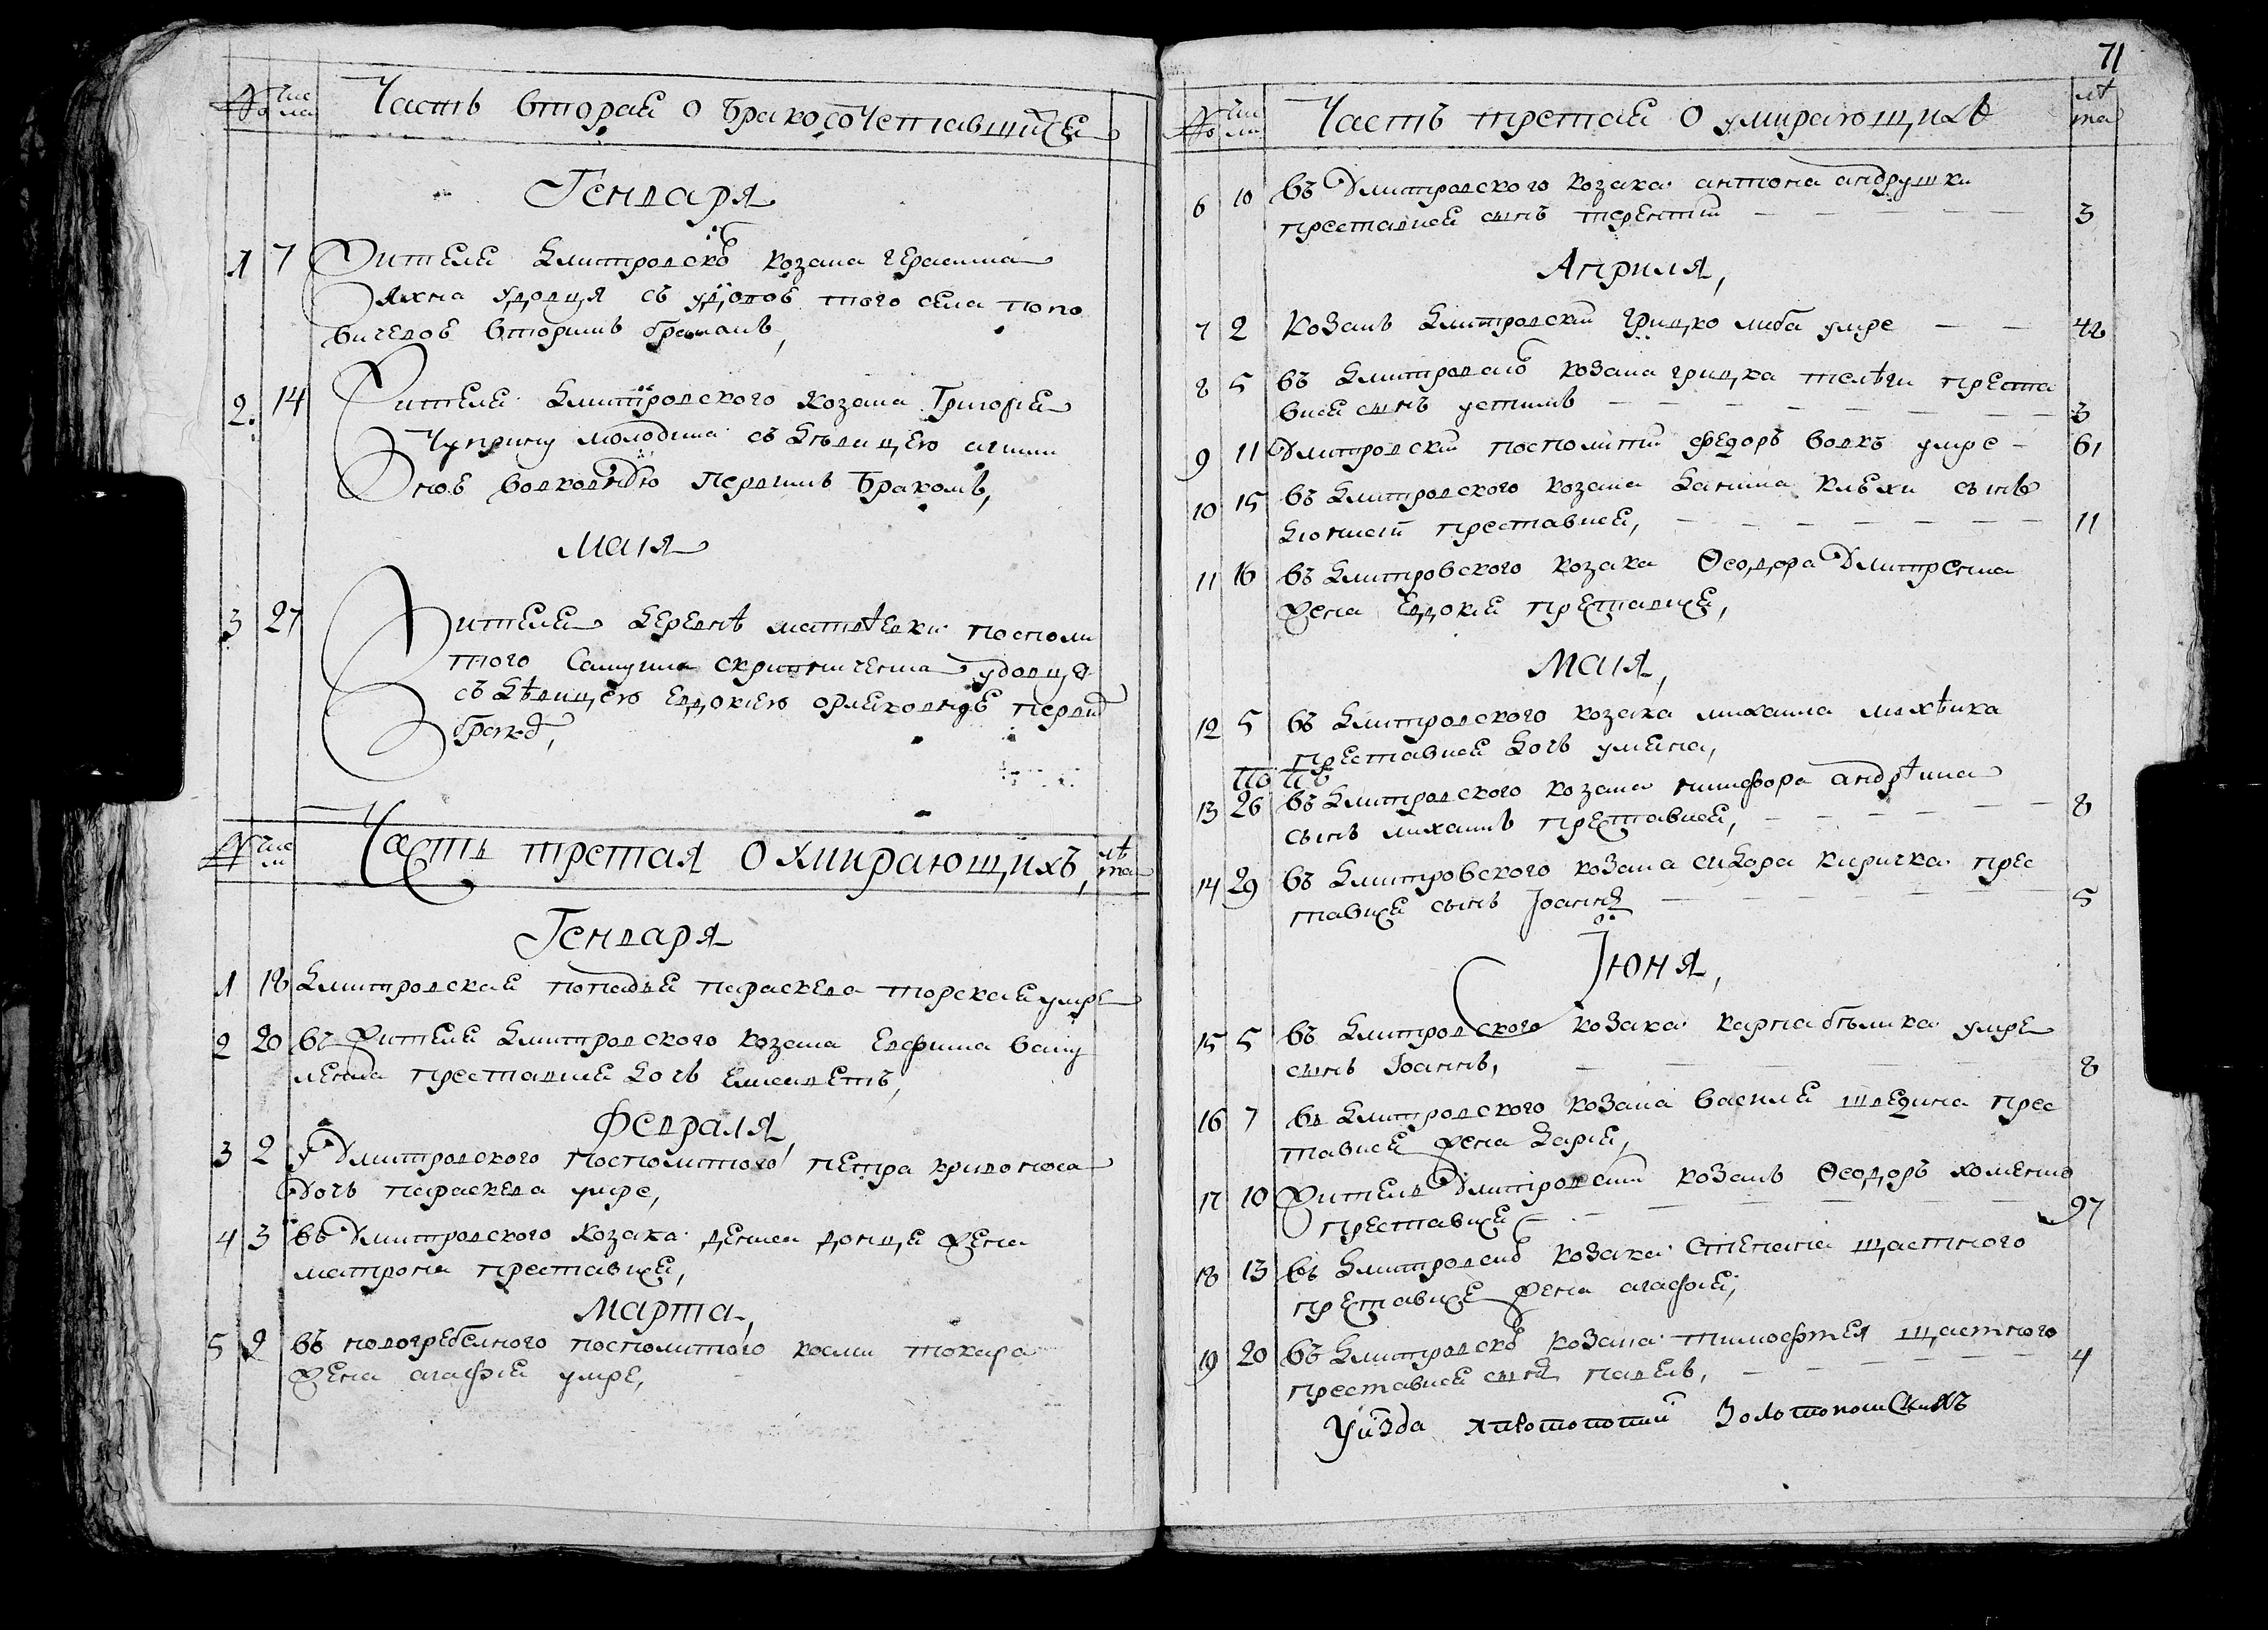 № Чис
ла
Часть вторая о бракосочетавшихся
Генваря
1 7 Жителя Дмитровско козака Герасима
Яхна удовця съ удовою того села попо
вичевою вторимъ бракомъ,
2 14 Жителя Дмитровского козака Григория
Чуприну молодика съ девицею
первимъ бракомъ,
Маія
3 27 Жителя деревне Матвеевки посполи
того Самуила Скрипниченка удовця
съ девицею Евдокиею первим
брако,
№ Чис
ли
Часть третая о умирающихъ, лѣ
та
Генваря
1 18 Дмитровская попадья Параскева Торская умре
2 20 въ жителя Дмитровского козака Евфима Ващу
ленка преставися дочь Елисаветъ,
Февраля,
3 2 У Дмитровского посполитого Петра Кривоноса
дочь Параскева умре,
4 3 въ Дмитровского козака Дениса Донця жена
Матрона преставися,
Марта,
5 2 въ подогребелного посполитого Косми Токара
жена Агафия умре,
71
№ Чи
ли
Часть третая о умирающихъ лѣ
та
6 10 въ Дмитровского козака Антона Андрушка
преставися синъ Терентий 3
Априля,
7 2 козакъ Дмитровский Грицко Либа умре 42
8 5 въ Дмитровско козака Грицка Телѣги преста
вися синъ Устимъ 3
9 11 Дмитровский посполитий Федоръ Вовкъ умре 61
10 15 въ Дмитровского козака Данила Клѣхи синъ
преставися, 11
11 16 въ Дмитровского козака Ѳеодора Дмитренка
жена Евдокия преставися,
Маія,
12 5 въ Дмитровского козака Михаила Махѣика
преставися дочь Улияна,
13 26 въ Дмитровского козака Никифора Андрѣика
синъ Михаилъ преставися, 8
14 29 въ Дмитровского козака Сидора Киричка прес
тавися синъ Іоаннъ 5
Іюня,
15 5 въ Дмитровского козака Карпа Бѣлика умре
синъ Іоаннъ, 8
16 7 въ Дмитровского козака Василя Шведина прес
тавися жена Дария,
17 10 житель Дмитровский козакъ Ѳеодоръ Хоменко
преставися 97
18 13 въ Дмитровско козака Стефана Щастного
преставися жена Агафия,
19 20 въ Дмитровско козака Тимофтея Щастного
преставися синъ Павелъ, 4
Уизда Золотоношскихъ